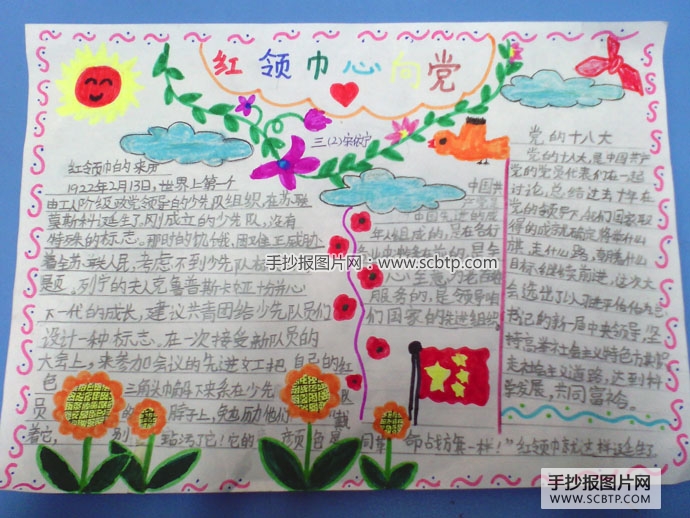 红领巾心向党
三(2)
红领巾的来历
1922年2月13日,世界上第一个
由工人阶级政党领导的少先队组织,在苏联
莫斯科诞生了。刚成立的少先队,没有
特殊的标志。那时的
着全苏联人民,考虑不到少先队标
列宁的夫人克鲁普斯卡亚十分关心
下一代的成长,建议共青团给少先队员们
设计一种标志。在一次接受新队员的
大会上,来参加会议的先进女工把自己的红
色三角头巾解下来系在少先队
员的脖子上,勉励他们戴
着它,别玷污了它!它的颜色是同革命战旗一样!”红领巾就这样诞生了。
中国共
产党是
中国先进的成
年人组成的,是在各行
心全意为人民
服务的,是领导咱
们国家的推进组织。
党的十八大
党的十八大,是中国共产
党的党员代表们在一起
讨论,总结过去十年在
党的领导下,咱们国家取
得的成就,确定将举什么
旗,走什么路,朝着什么
目标继续前进,这次大
会选出了以习近平
书记的新一届中央领导,坚
持高举社会主义特色
走社会主义道路,达到科
学发展,共同富裕。
手抄报图片网:www.scbtp.com
手抄报图片网
WWW.SCBTP.COM